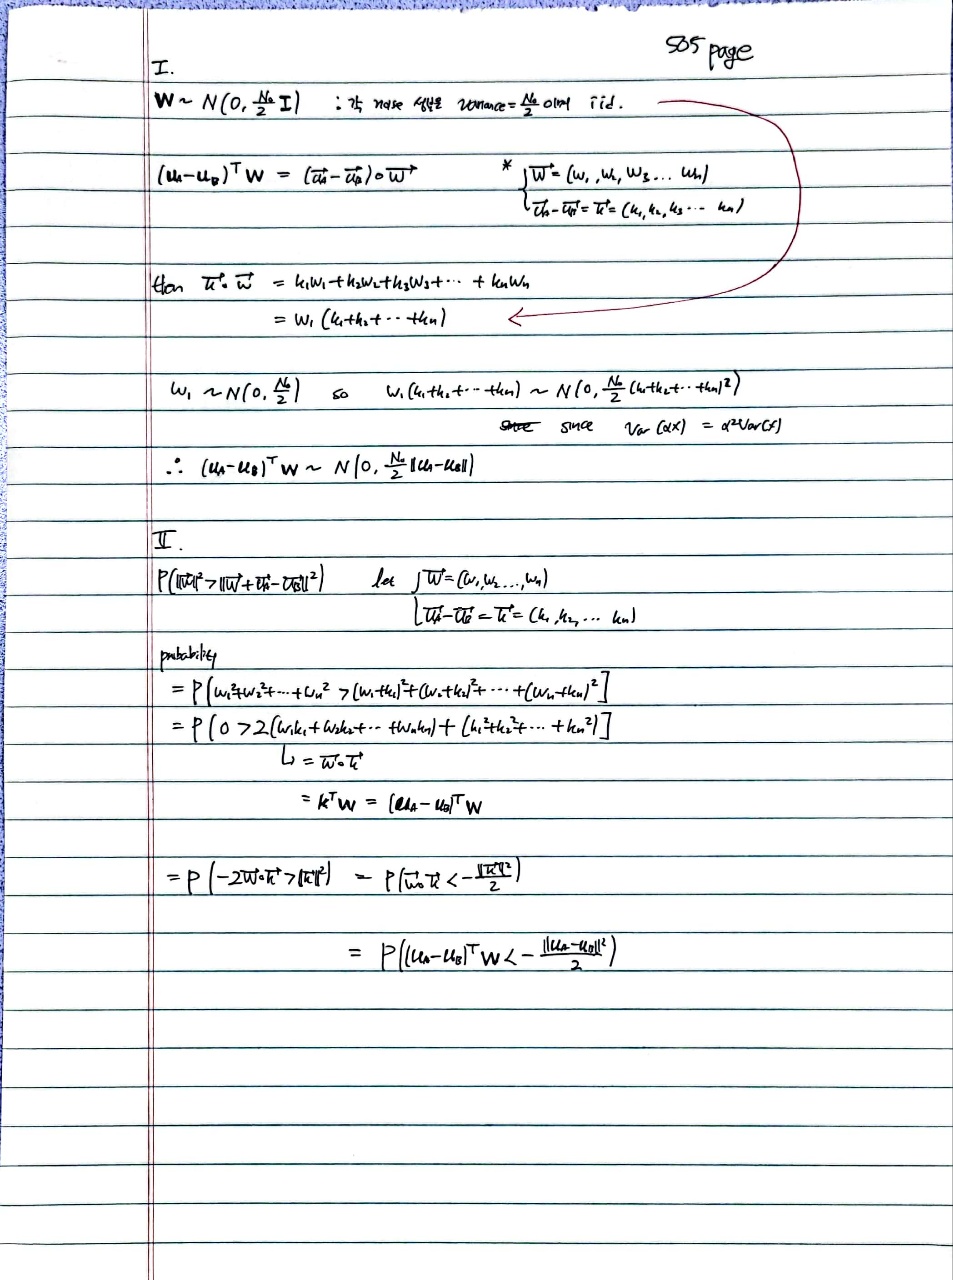 505 page
I.
W ~ N(0, N₀/2 I) : 각 noise 성분은 variance = N₀/2 이며 iid.
(u_A-u_B)ᵀ W = (u⃗_A-u⃗_B)∘w⃗ * { w⃗ = (w₁, w₂, w₃ ... wₙ)
u⃗_A-u⃗_B = k⃗ = (k₁, k₂, k₃ ... kₙ)
then k⃗∘w⃗ = k₁w₁+k₂w₂+k₃w₃+ ... + kₙwₙ
= w₁ (k₁+k₂+ ... +kₙ)
w₁ ~ N(0, N₀/2) so w₁(k₁+k₂+ ... +kₙ) ~ N(0, N₀/2 (k₁+k₂+ ... +kₙ)²)
since Var(αx) = α²Var(x)
∴ (u_A-u_B)ᵀ W ~ N(0, N₀/2 ||u_A-u_B||)
II.
P(||w⃗||² > ||w⃗+u⃗_A-u⃗_B||²) let { w⃗ = (w₁, w₂ ..., wₙ)
u⃗_A-u⃗_B = k⃗ = (k₁, k₂, ... kₙ)
probability
= P[w₁²+w₂²+ ... +wₙ² > (w₁+k₁)²+(w₂+k₂)²+ ... +(wₙ+kₙ)²]
= P[0 > 2(w₁k₁+w₂k₂+ ... +wₙkₙ) + (k₁²+k₂²+ ... +kₙ²)]
↳ = w⃗∘k⃗
= kᵀW = (u_A-u_B)ᵀ W
= P(-2w⃗∘k⃗ > ||k⃗||²) = P(w⃗∘k⃗ < -||k⃗||²/2)
= P((u_A-u_B)ᵀ W < - ||u_A-u_B||²/2)